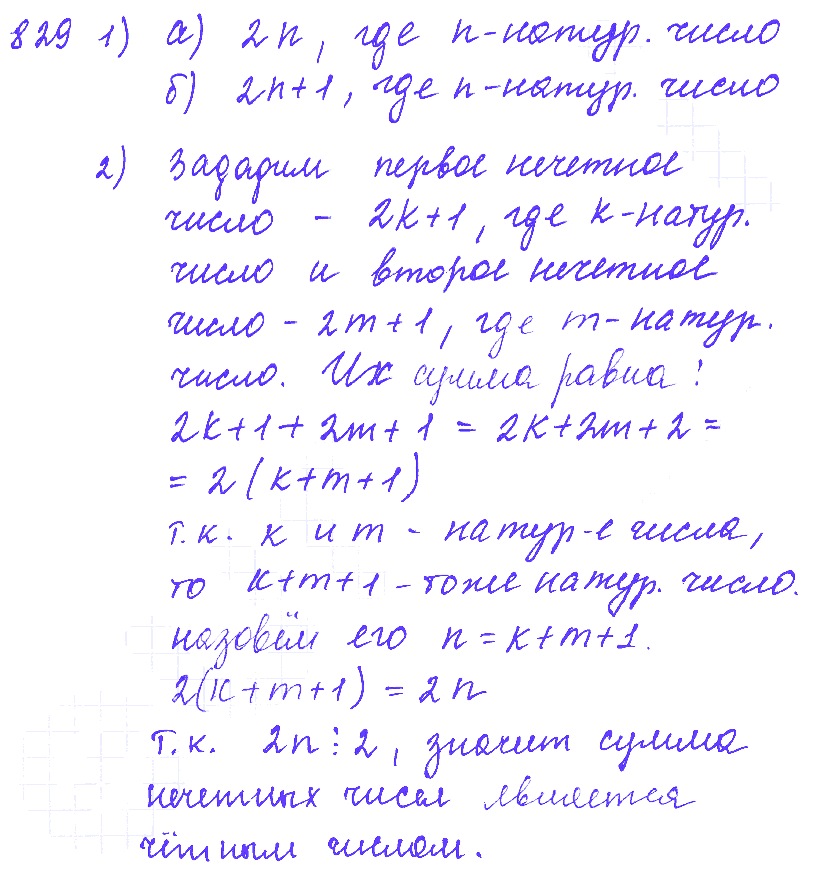 829 1) а) 2n, где n-натур. число
б) 2n+1, где n-натур. число
2) Зададим первое нечетное
число - 2k+1, где k-натур.
число и второе нечетное
число - 2m+1, где m-натур.
число. Их сумма равна:
2k+1+2m+1 = 2k+2m+2 =
= 2(k+m+1)
т.к. k и m - натур-е числа,
то k+m+1 - тоже натур. число.
назовём его n = k+m+1.
2(k+m+1) = 2n
т.к. 2n⋮2, значит сумма
нечетных чисел является
чётным числом.